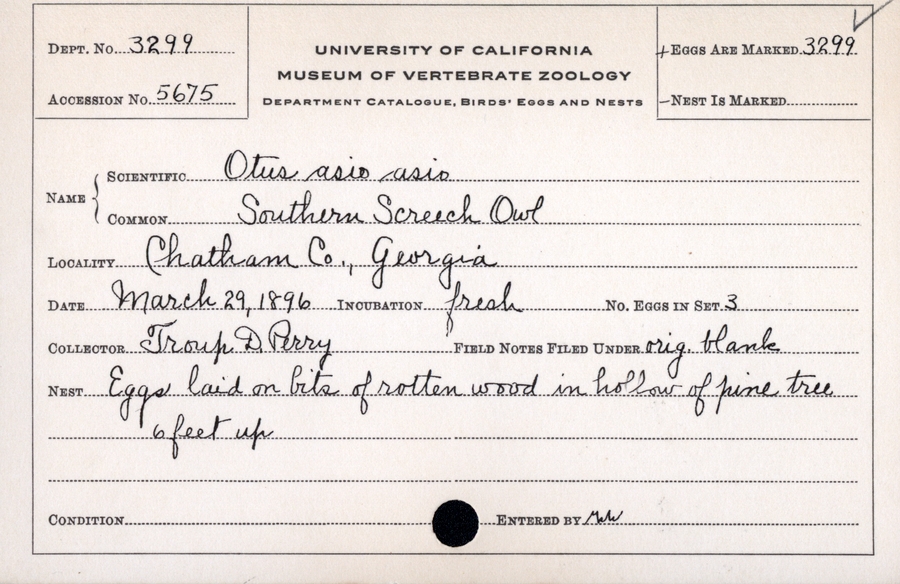 DEPT. NO. 3299
ACCESSION NO. 5675
UNIVERSITY OF CALIFORNIA
MUSEUM OF VERTEBRATE ZOOLOGY
DEPARTMENT CATALOGUE, BIRDS' EGGS AND NESTS
+EGGS ARE MARKED 3299
—NEST IS MARKED
NAME
SCIENTIFIC Otus asio asio
COMMON Southern Screech Owl
LOCALITY Chatham Co., Georgia
DATE March 29, 1896 INCUBATION fresh NO. EGGS IN SET 3
COLLECTOR Troup D. Perry FIELD NOTES FILED UNDER orig. blank
NEST Eggs laid on bits of rotten wood in hollow of pine tree
6 feet up
CONDITION ENTERED BY